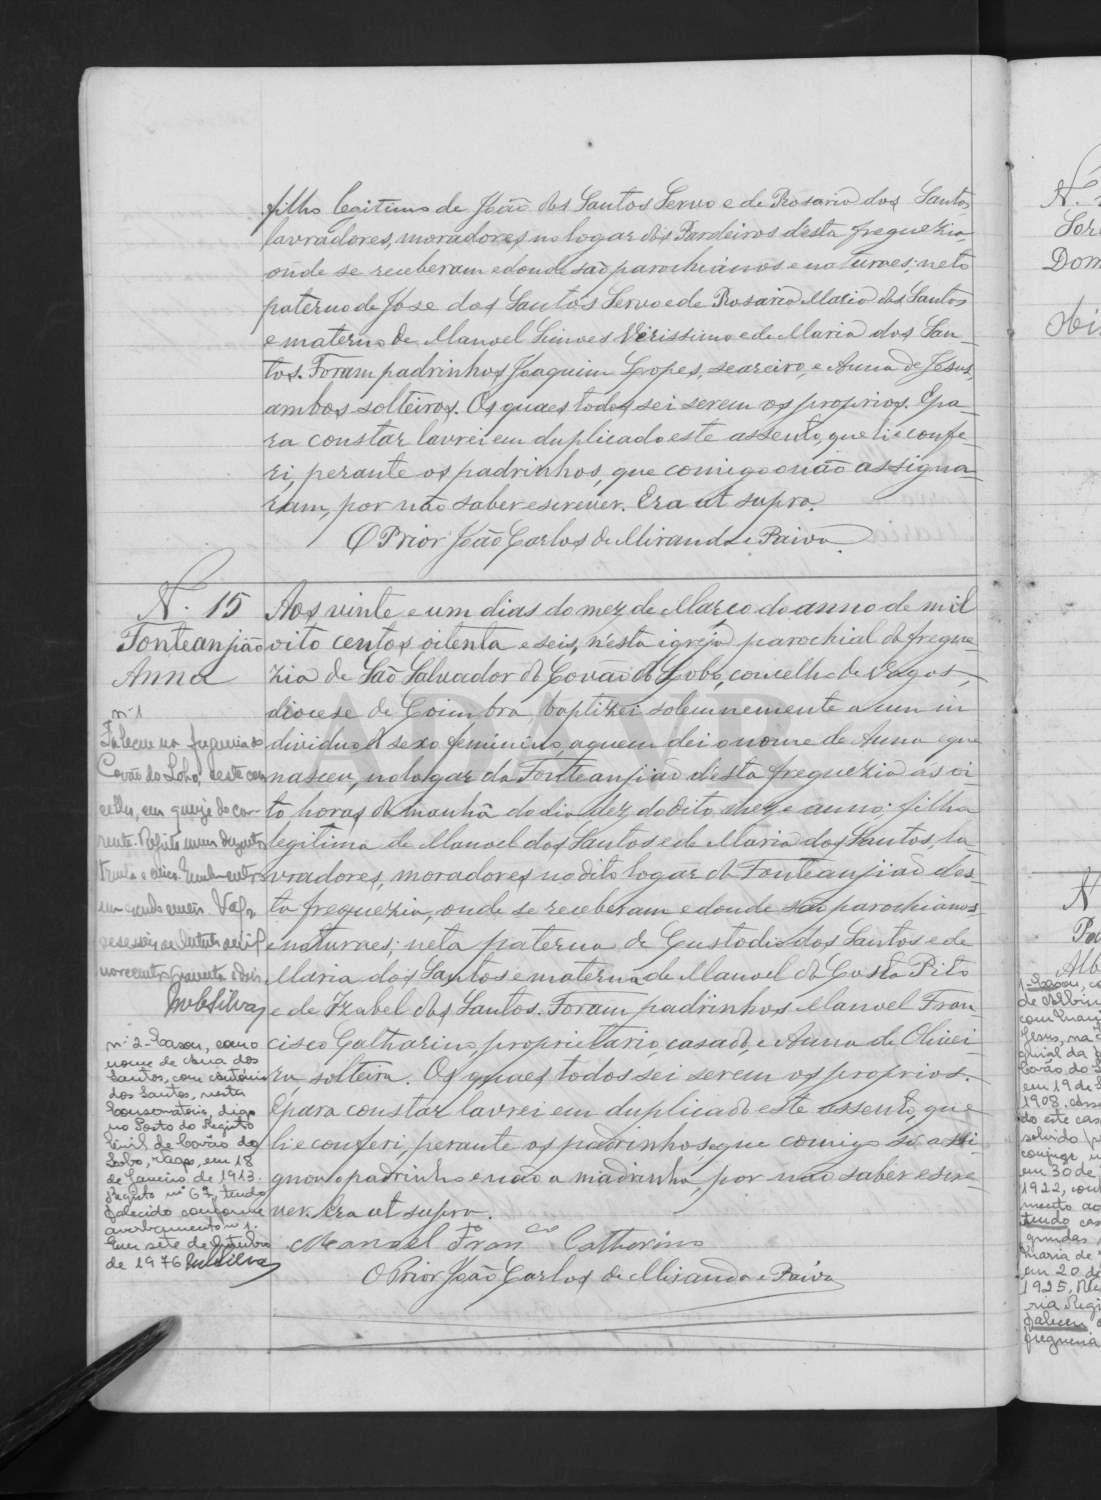 filho legitimo de João dos Santos Servo e de Rosaria dos Santos,
lavradores, moradores no logar dos Pardeiros d'esta freguezia,
onde se receberam e donde são parochianos e naturaes; neto
paterno de José dos Santos Servo e de Rosaria Maria dos Santos
e materno de Manoel Simoes Verissimo e de Maria dos San-
tos. Foram padrinhos Joaquim Lopes, seareiro, e Anna de Jesus,
ambos solteiros. Os quaes todos sei serem os proprios. E pa-
ra constar lavrei em duplicado este assento, que li e confe-
ri, perante os padrinhos, que comigo não assigna-
ram, por não saber escrever. Era ut supra.
O Prior João Carlos de Miranda e Paiva
N. 15
Fonteanjião
Anna
Aos vinte e um dias do mez de Março do anno de mil
oito centos oitenta e seis, n'esta igreja parochial da fregue-
zia de São Salvador do Covão do Lobo, concelho de Vagos,
diocese de Coimbra, baptizei solemnemente a um in
dividuo do sexo feminino, a quem dei o nome de Anna que
nasceu, no logar da Fonteanjião d'esta freguezia ás oi-
to horas da manhã do dia dez do dito mez e anno; filha
legitima de Manoel dos Santos e de Maria dos Santos, la-
vradores, moradores no dito logar da Fonteanjião des-
ta freguezia, onde se receberam e donde são parochianos
e naturaes; neta paterna de Custodio dos Santos e de
Maria dos Santos e materna de Manoel da Costa Pito
e de Izabel dos Santos. Foram padrinhos Manoel Fran-
cisco Catharino, proprietario, casado, e Anna de Olivei-
ra solteira. Os quaes todos sei serem os proprios.
E para constar lavrei em duplicado este assento, que
li e conferi, perante os padrinhos, que comigo só assi-
gnou o padrinho e não a madrinha, por não saber escre-
ver. Era ut supra.
Manoel Fran.co Catharino
O Prior João Carlos de Miranda e Paiva
nº 1
Faleceu na freguesia do
Covão do Lobo, deste con
celho, em quinze do cor-
rente. Registo numero duzentos
trinta e cinco
novecentos quarenta e dois
MebSilva
nº 2 - Casou, com o
nome de Ana dos
Santos, com António
dos Santos, nesta
Conservatória, digo
no Posto do Registo
Civil de Covão do
Lobo, Vagos, em 18
de Janeiro de 1913.
Registo nº 67, tendo
falecido conforme
averbamento nº 1.
Em sete de Outubro
de 1976
N.
Dom
N
1-Casou, c
de Albin
Jesus, na
Covão do L
em 19 de
1908.
do este cas
solvido p
conjuge,
em 30 de
1922,
mento ao
tendo cas
gundas
maria de
em 20 de
1925,
ria Regi
faleceu
freguesia